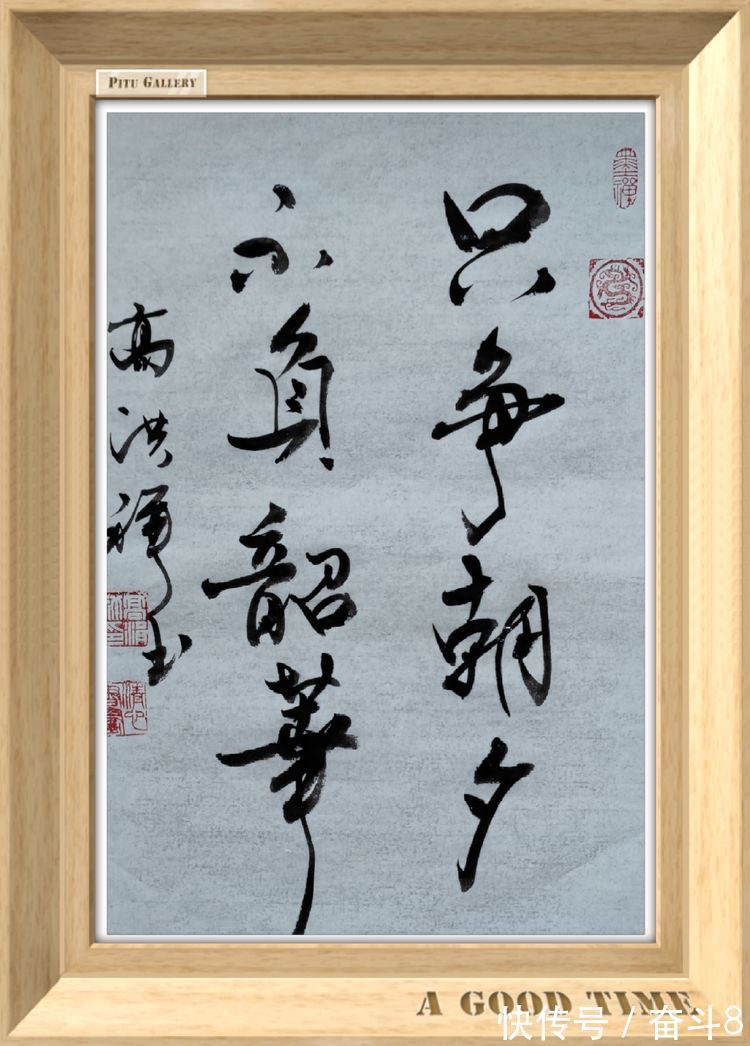 PITU GALLERY
只争朝夕
不負韶華
高洪
书
A GOOD TIME
快传号 / 奋斗8